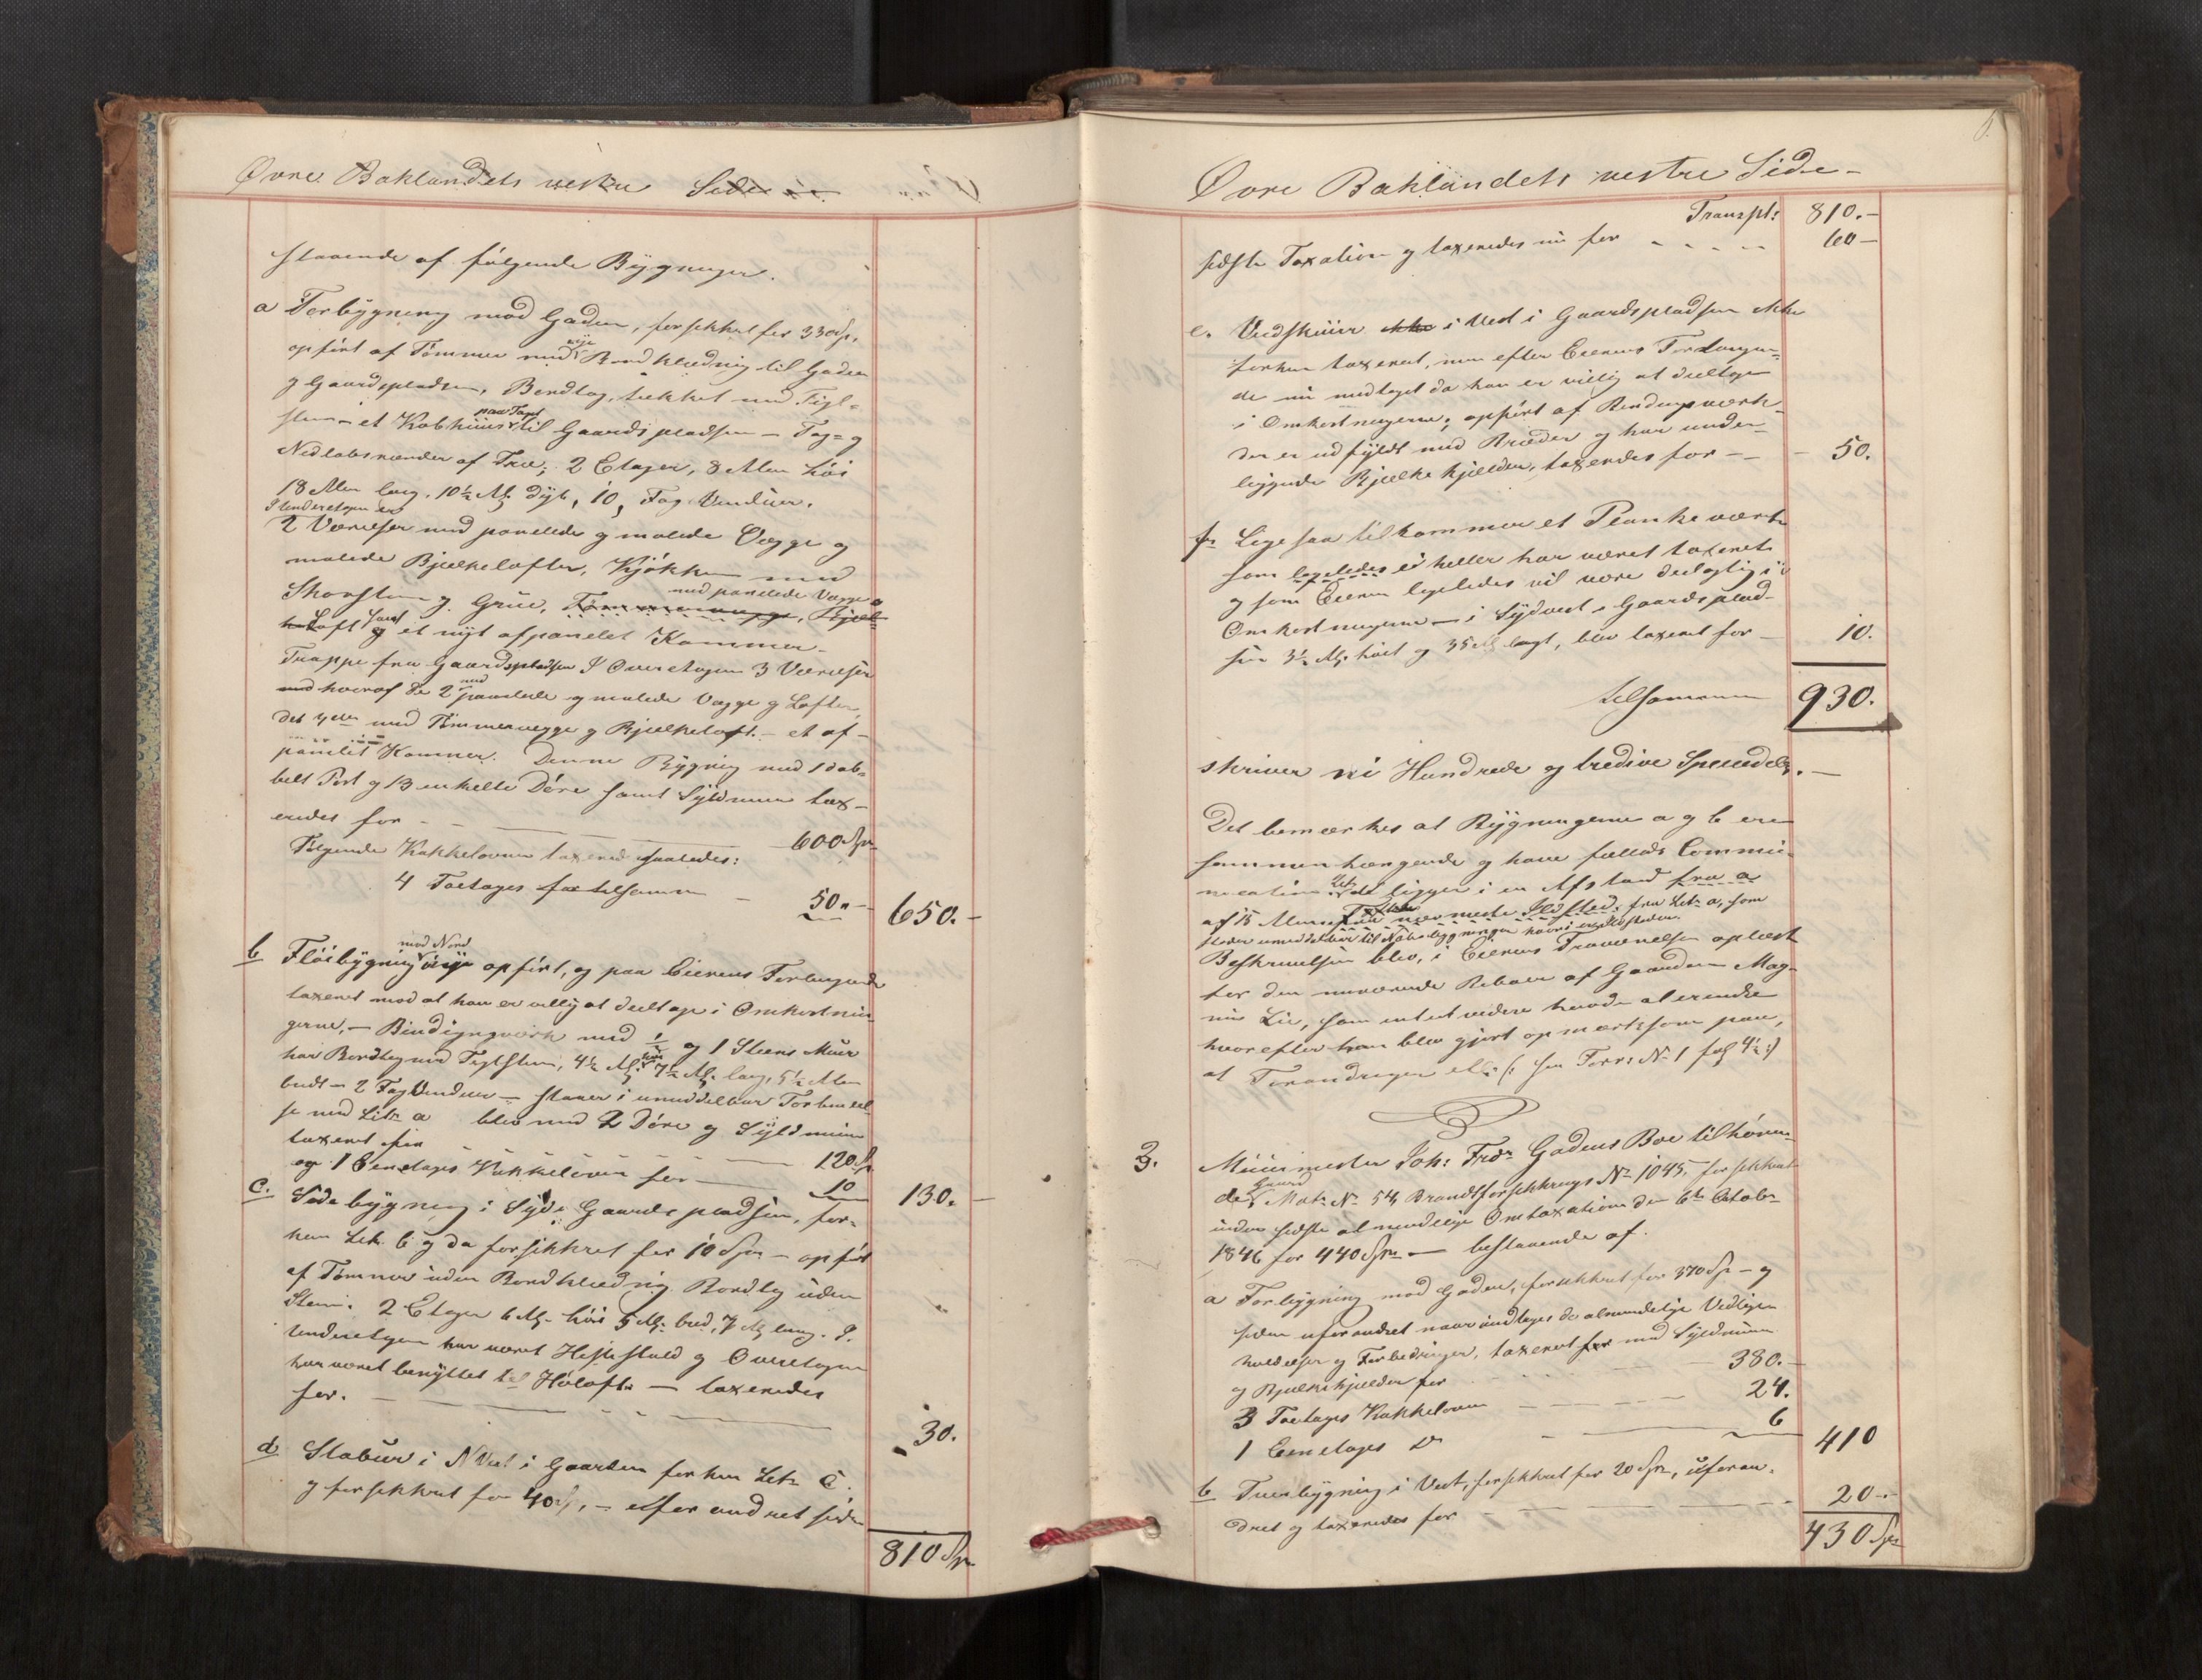 Øvre Baklandets vestre Side
staaende af følgende Bygninger.
a Forbygning mod Gaden, forsikkret for 330 Sp.
opført af Tømmer med nye Bordklædning til Gaden
og Gaardspladsen, Bordtag, tækket med Tegl-
steen – et Kobhuus paa Taget til Gaardspladsen – Tag- og
Nedløbsrænder af Træ; 2 Etager, 8 Alen høi
18 Alen lang, 10½ Al. dyb, 10 Fag Vinduer.
I Underetagen er
2 Værelser med panelede og malede Vægge og
malede Bjelkelofter, Kjøkken med
Skorsteen og Grue, med panelede Vægge
Loft samt et nyt afpanelet Kammer.
Trappe fra Gaardspladsen I Overetagen 3 Værelser
hvoraf de 2 med panelede og malede Vægge og Lofter,
det 3die med Tømmervægge og Bjelkeloft – et af-
panelet Kammer. Denne Bygning med 1 dob-
belt Port og 13 enkelte Døre samt Syldmuur tax-
eredes for 600 Sp.
Følgende Kakkelovne taxered saaledes:
4 Toetages tilsammen 50 – 650. –
b Fløibygning mod Nord opført, og paa Eierens Forlangende
taxeret mod at han er villig at deeltage i Omkostnin-
gerne, – Bindingsværk med ½ og 1 Steens Muur
har Bordtag med Teglsteen, 4½ Al. høi 7½ Al. lang, 5½ Alen
bred – 2 Fag Vinduer – staaer i umiddelbar Forbindel-
se med Litr a blev med 2 Døre og Syldmuur
taxeret for 120 Sp
og 1 Eenetages Kakkelovn for 10 130. –
c. Sidebygning i Syd i Gaardspladsen, for-
hen Litr. b og da forsikkret for 10 Spd – opført
af Tømmer uden Bordklædning Bordtag uden
Steen. 2 Etager 6 Al. høi 5 Al. bred, 7 Al lang. I
Underetagen har været Hestestald og Overetagen
har været benyttet til Høloft – taxeredes
for. 30.
d Stabuur i N Vest i Gaarden forhen Litr C.
og forsikkret for 40 Sp, – uforandret siden
810 Sp
Øvre Baklandets vestre Side –
Transpt: 810. –
sidste Taxation og taxeredes nu for 60 –
e. Vedskuur i Vest i Gaardspladsen ikke
forhen taxeret, men efter Eierens Forlangen-
de nu medtaget da han er villig at deeltage
i Omkostningerne; opført af Bindingsværk
der er udfyldt med Bræder og har under-
liggende Bjelkekjælder, taxeredes for – 50.
f. Ligesaa tilkommer et Plankeværk
som ligeledes ei heller har været taxeret
og som Eieren ligeledes vil være deelagtig i
Omkostningerne – i Sydvest i Gaardsplad-
sen 3½ Al. høit og 35 Al langt, blev taxeret for – 10.
tilsammen 930.
skriver ni Hundrede og tredive Speciedlr. –
Det bemærkes at Bygningerne a og b ere
sammenhængende og have fælleds Commu-
nication, ligger i en Afstand fra a
af 15 Alen fra nærmeste Ildsted, fra Litr a, som
staaer umiddelbar til Nabobygningen hvori er Ildsteder.
Beskrivelsen blev, i Eierens Fraværelse oplæst
for den nuværende Beboer af Gaarden Mag-
nus Lie, som intet videre havde at erindre
hvorefter han blev gjort opmærksom paa,
at Forandringer etc (: see Forr: No 1 fol 4½ :)
3. Muurmester Joh: Fredr Gadens Boe tilhøren-
de Gaard Matr No 54, Brandforsikkrings No 1045, forsikkret
under sidste almindelige Omtaxation den 6te Octobr
1846 for 440 Spd – bestaaende af.
a Forbygning mod Gaden, forsikkret for 370 Sp – og
siden uforandret naar undtages de almindelige Vedlige-
holdelser og Forbedringer, taxeret med Syldmuur
og Bjelkekjelder for 380. –
3 Toetages Kakkelovne 24.
1 Eenetages Do 6 410
b Tverbygning i Vest, forsikkret for 20 Spd, uforan-
dret og taxeredes for 20 –
430 Spd